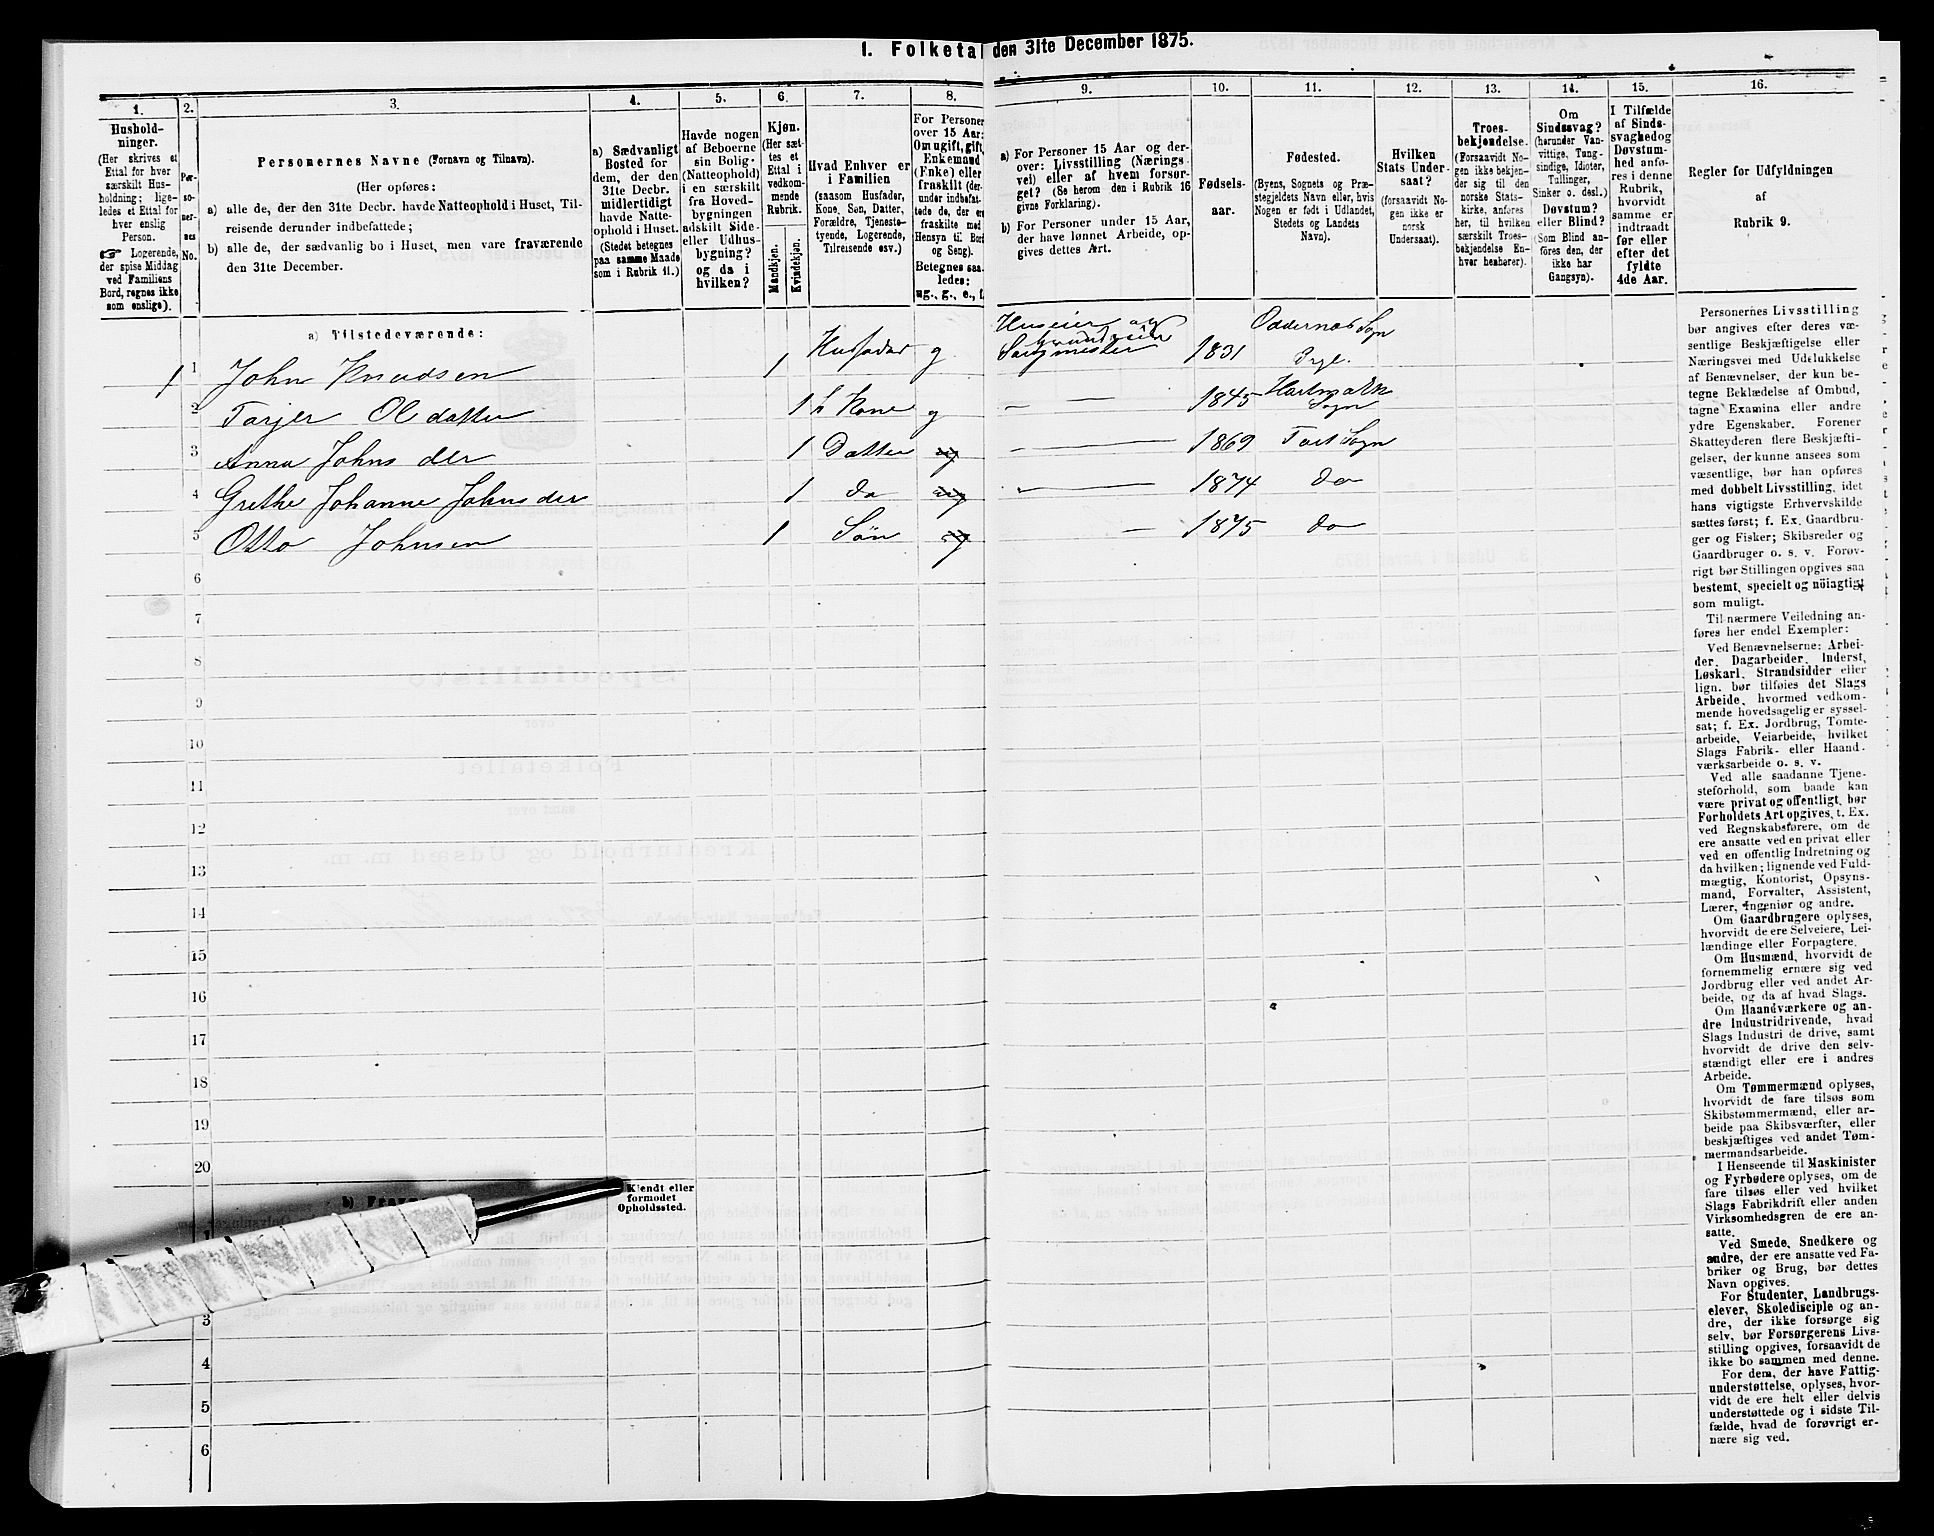 1. Folketal den 31te December 1875.
1.
Hushold-
ninger.
(Her skrives et
Ettal for hver
særskilt Hus-
holdning; lige-
ledes et Ettal for
hver enslig
Person.
☞ Logerende,
der spise Middag
ved Familiens
Bord, regnes ikke
som enslige).
2.
Per-
so-
ner-
nes
No.
3.
Personernes Navne (Fornavn og Tilnavn).
(Her opføres:
a) alle de, der den 31te Decbr. havde Natteophold i Huset, Til-
reisende derunder indbefattede;
b) alle de, der sædvanlig bo i Huset, men vare fraværende
den 31te December.
4.
a) Sædvanligt
Bosted for
dem, der den
31te Decbr.
midlertidigt
havde Natte-
ophold i Huset.
(Stedet betegnes
paa samme Maade
som i Rubrik 11.)
5.
Havde nogen
af Beboerne
sin Bolig
(Natteophold)
i en særskilt
fra Hoved-
bygningen
adskilt Side-
eller Udhus-
bygning?
og da i
hvilken?
6.
Kjøn.
(Her sæt-
tes et
Ettal i
vedkom-
mende
Rubrik.
Mandkjøn.
Kvindekjøn.
7.
Hvad Enhver er
i Familien
(saasom Husfader,
Kone, Søn, Datter,
Forældre, Tjeneste-
tyende, Logerende,
Tilreisende osv.)
8.
For Personer
over 15 Aar:
Om ugift, gift,
Enkemand
(Enke) eller
fraskilt (der-
under indbefat-
tede de, der er
fraskilte med
Hensyn til Bord
og Seng).
Betegnes saa-
ledes:
ug., g., e., f.
9.
a) For Personer 15 Aar og der-
over: Livsstilling (Nærings-
vei) eller af hvem forsør-
get? (Se herom den i Rubrik 16
givne Forklaring).
b) For Personer under 15 Aar,
der have lønnet Arbeide, op-
gives dettes Art.
10.
Fødsels-
aar.
11.
Fødested.
(Byens, Sognets og Præ-
stegjeldets Navn eller, hvis
Nogen er født i Udlandet,
Stedets og Landets
Navn).
12.
Hvilken
Stats Under-
saat?
(forsaavidt No-
gen ikke er
norsk
Undersaat).
13.
Troes-
bekjendelse.
(Forsaavidt No-
gen ikke bekjen-
der sig til den
norske Stats-
kirke, anføres
her, til hvilken
særskilt Troes-
bekjendelse En-
hver henhører).
14.
Om
Sindssvag?
(herunder Van-
vittige, Tung-
sindige, Idioter,
Tullinger,
Sinker o. desl.)
Døvstum?
eller Blind?
(Som Blind an-
føres den, der
ikke har
Gangsyn).
15.
I Tilfælde
af Sinds-
svaghed og
Døvstum-
hed anfø-
res i denne
Rubrik,
hvorvidt
samme er
indtraadt
før eller
efter det
fyldte
4de Aar.
16.
Regler for Udfyldningen
af
Rubrik 9.
a) Tilstedeværende:
1 1 John Knudsen 1 Husfader g Huseier og Grundeier Sagmester 1831 Oddernes Sogn Prgl.
2 Tarjer Olsdatter 1 Kone g — — 1845 Sogn
3 Anna Johnsder 1 Datter ug — 1869 Sogn
4 Grethe Johanne Johnsder 1 do ug — 1874 do
5 Otto Johnsen 1 Søn ug — 1875 do
6
7
8
9
10
11
12
13
14
15
16
17
18
19
20
b)
Kjendt eller
formodet
Opholdssted.
1
3
4
5
6
Personernes Livsstilling
bør angives efter deres væ-
sentlige Beskjæftigelse eller
Næringsvei med Udelukkelse
af Benævnelser, der kun be-
tegne Beklædelse af Ombud,
tagne Examina eller andre
ydre Egenskaber. Forener
Skatteyderen flere Beskjæfti-
gelser, der kunne ansees som
væsentlige, bør han opføres
med dobbelt Livsstilling, idet
hans vigtigste Erhvervskilde
sættes først; f. Ex. Gaardbru-
ger og Fisker; Skibsreder og
Gaardbruger o. s. v. Forøv-
rigt bør Stillingen opgives saa
bestemt, specielt og nöiagtigt
som muligt.
Til nærmere Veiledning an-
føres her endel Exempler:
Ved Benævnelserne: Arbei-
der, Dagarbeider, Inderst,
Løskarl, Strandsidder eller
lign. bør tilføies det Slags
Arbeide, hvormed vedkom-
mende hovedsagelig er syssel-
sat; f. Ex. Jordbrug, Tomte-
arbeide, Veiarbeide, hvilket
Slags Fabrik- eller Haand-
værksarbeide o. s. v.
Ved alle saadanne Tjene-
steforhold, som baade kan
være privat og offentligt, bør
Forholdets Art opgives, t. Ex.
ved Regnskabsførere, om de
ere ansatte ved en privat eller
ved en offentlig Indretning og
da hvilken; lignende ved Fuld-
mægtig, Kontorist, Opsyns-
mand, Forvalter, Assistent,
Lærer, Ingeniør og andre.
Om Gaardbrugere oplyses,
hvorvidt de ere Selveiere, Lei-
lændinge eller Forpagtere.
Om Husmænd, hvorvidt de
fornemmelig ernære sig ved
Jordbrug eller ved andet Ar-
beide, og da af hvad Slags.
Om Haandværkere og an-
dre Industridrivende, hvad
Slags Industri de drive, samt
hvorvidt de drive den selv-
stændigt eller ere i andres
Arbeide.
Om Tømmermænd oplyses,
hvorvidt de fare tilsøs som
Skibstømmermænd, eller ar-
beide paa Skibsværfter, eller
beskjæftiges ved andet Tøm-
mermandsarbeide.
I Henseende til Maskinister
og Fyrbødere oplyses, om de
fare tilsøs eller ved hvilket
Slags Fabrikdrift eller anden
Virksomhedsgren de ere an-
satte.
Ved Smede, Snedkere og
andre, der ere ansatte ved Fa-
briker og Brug, bør dettes
Navn opgives.
For Studenter, Landbrugs-
elever, Skoledisciple og an-
dre, der ikke forsørge sig
selv, bør Forsørgerens Livs-
stilling opgives, forsaavidt de
ikke bo sammen med denne.
For dem, der have Fattig-
understøttelse, oplyses, hvor-
vidt de ere helt eller delvis
understøttede og i sidste Til-
fælde, hvad de forøvrigt er-
nære sig ved.